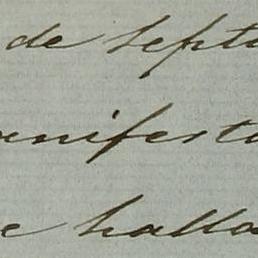 de septi
anifesta
e halla